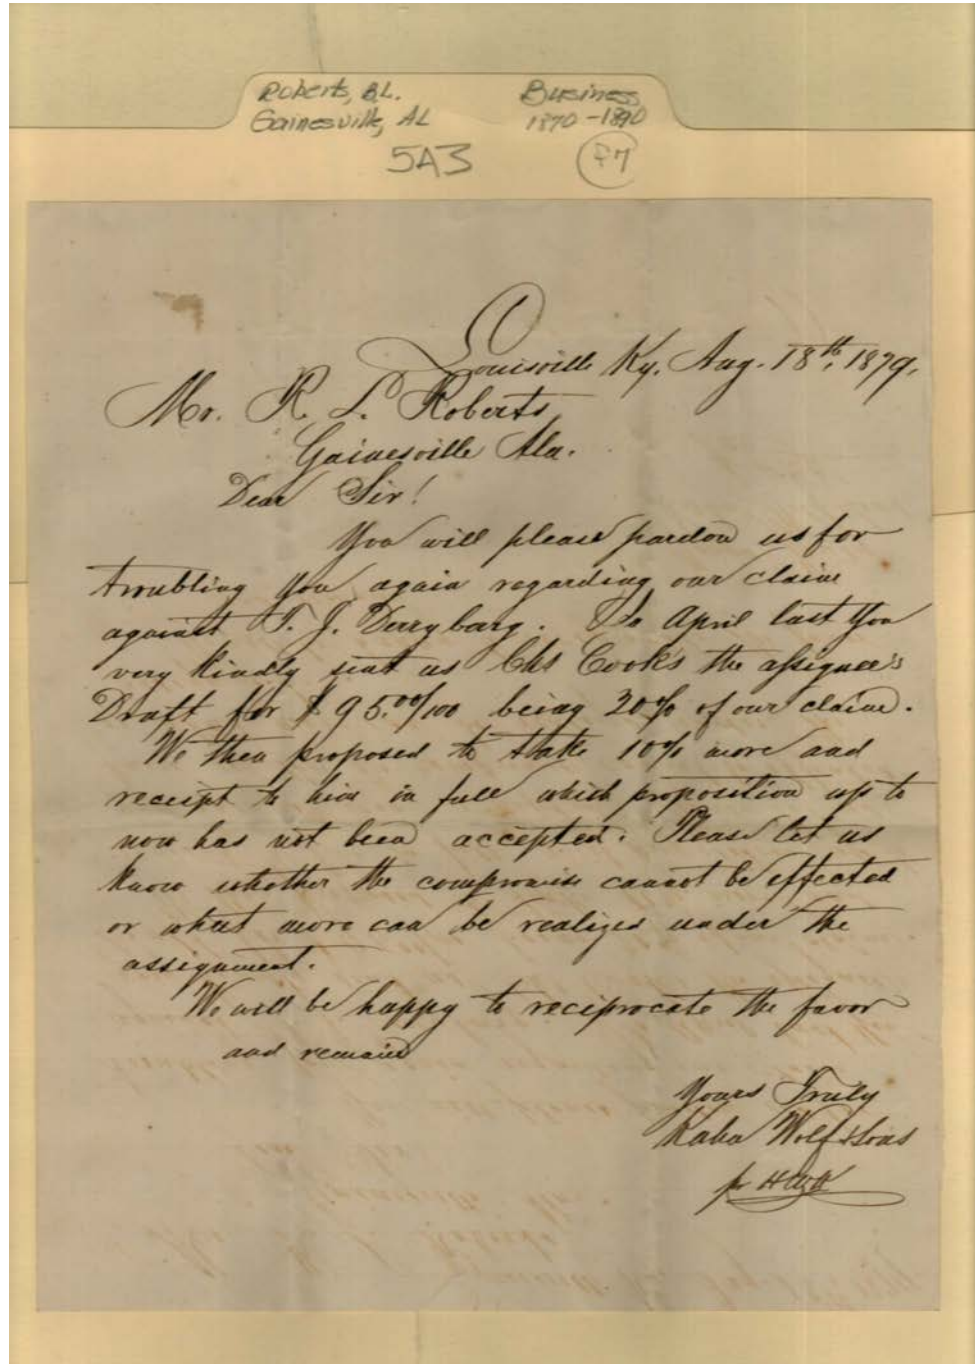 Roberts, B.L. Business
Gainesville, AL 1870-1890
5A3 F7
Louisville Ky. Aug. 18th, 1879.
Mr. R. L. Roberts
Gainesville Ala.
Dear Sir!
You will please pardon us for
troubling you again regarding our claim
against T. J. Derryberg. In April last you
very kindly sent us Chs Cook's the assignee's
Draft for $95.00/100 being 20% of our claim.
We then proposed to take 10% more and
receipt to him in full which proposition up to
now has not been accepted. Please let us
know whether the compromise cannot be effected
or what more can be realized under the
assignment.
We will be happy to reciprocate the favor
and remain
Yours Truly
Kahn Wolf & Sons